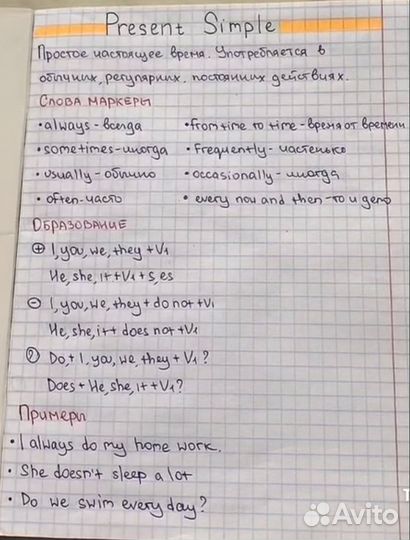 Present Simple
Простое настоящее время. Употребляется в
обычных, регулярних, постоянных действиях.
СЛОВА МАРКЕРЫ
• always - всегда • from time to time - время от времени
• sometimes - иногда • frequently - частенько
• usually - обычно • occasionally - иногда
• often - часто • every now and then - то и дело
ОБРАЗОВАНИЕ
+ I, you, we, they + V1
He, she, it + V1 + s, es
- I, you, we, they + do not + V1
He, she, it + does not + V1
? Do, + I, you, we, they + V1 ?
Does + He, she, it + V1?
Примеры
• I always do my home work.
• She doesn't sleep a lot
• Do we swim every day?
Avito